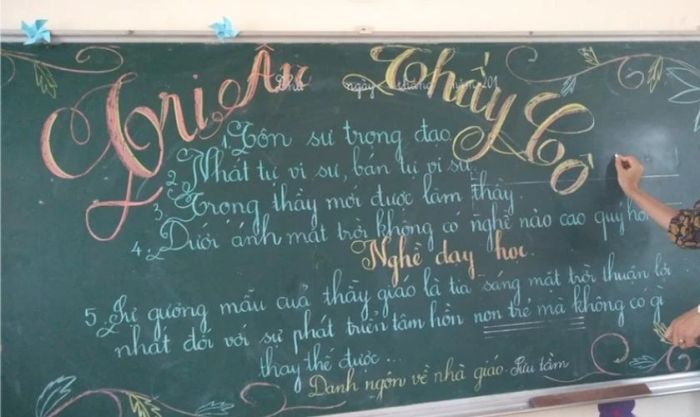 Tri Ân Thầy Cô
Thứ ngày tháng năm 201
1. Tôn sư trọng đạo.
2. Nhất tự vi sư, bán tự vi sư.
3. Trọng thầy mới được làm thầy.
4. Dưới ánh mặt trời không có nghề nào cao quý hơn
Nghề dạy học.
5. Sự gương mẫu của thầy giáo là tia sáng mặt trời thuận lợi
nhất đối với sự phát triển tâm hồn non trẻ mà không có gì
thay thế được ...
Danh ngôn về nhà giáo. Sưu tầm